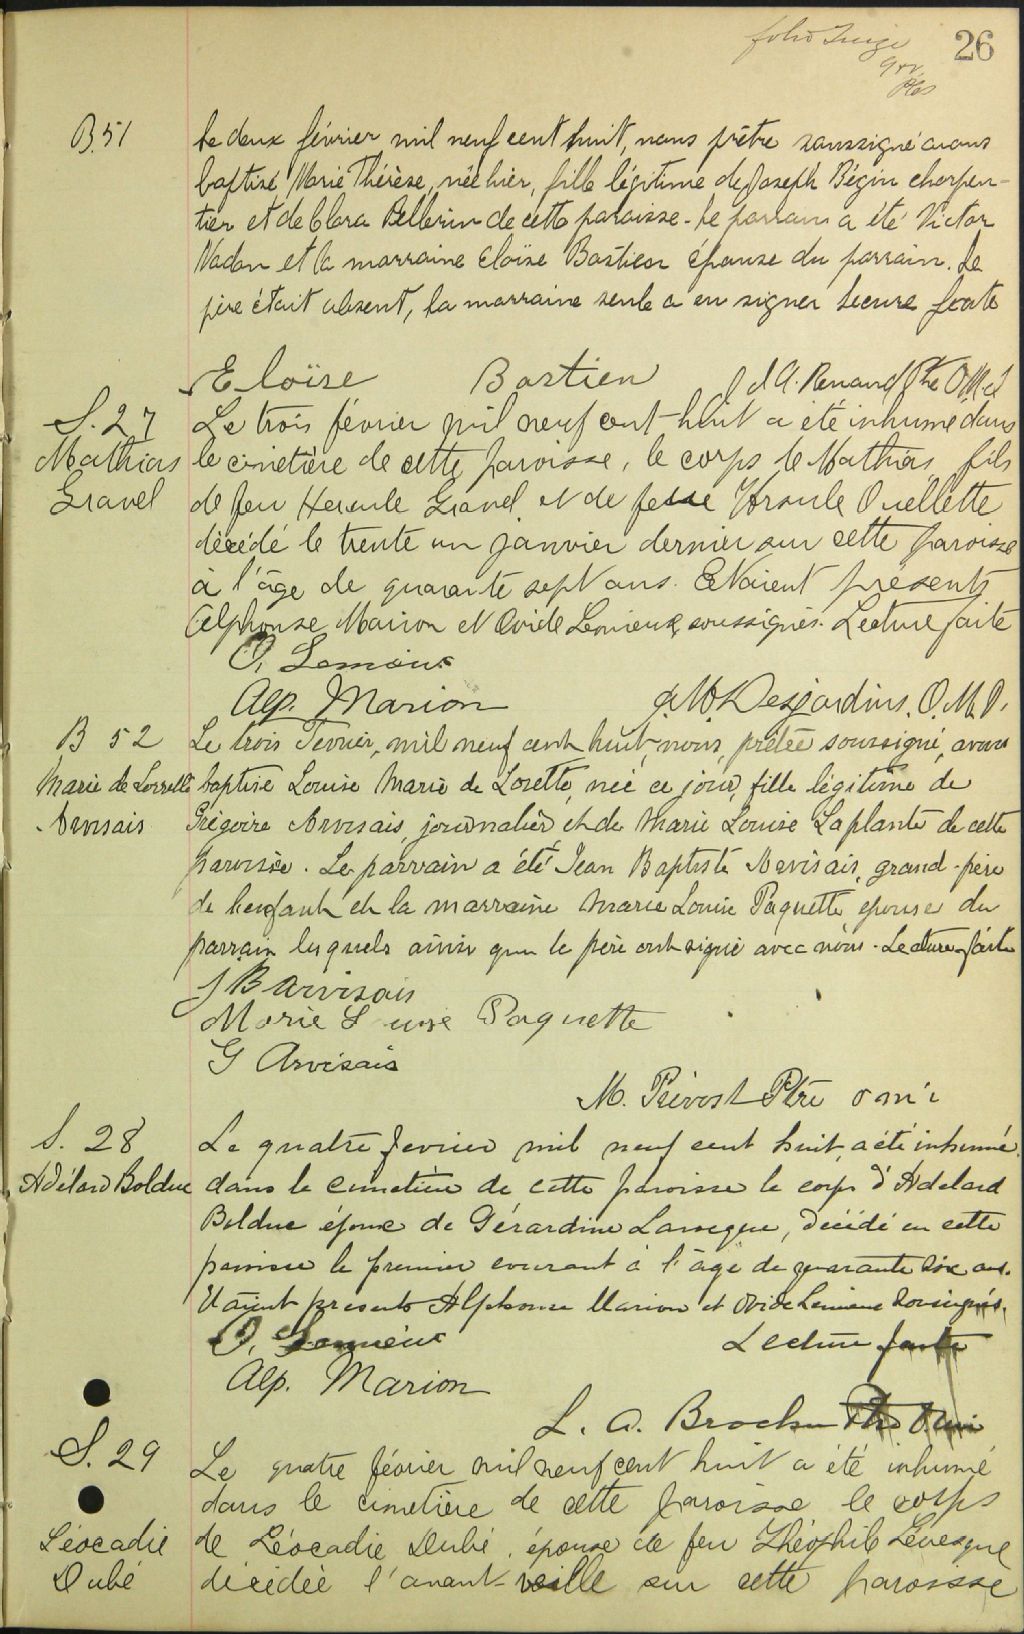 folio
26
B.51
Le deux février mil neuf cent huit, nous prêtre soussigné avons
baptisé Marie Thérèse, née hier, fille légitime de Joseph Bégin charpen-
tier et de Clara Pellerin de cette paroisse. Le parrain a été Victor
Nadon et la marraine Eloïse Bastien épouse du parrain. Le
père était absent, la marraine seule a su signer Lecture faite
Eloïse Bastien A. Renaud Ptre O.M.I
S. 27
Mathias
Gravel
Le trois février mil neuf cent huit a été inhumé dans
le cimetière de cette paroisse, le corps de Mathias fils
de feu Hercule Gravel et de feue Ursule Ouellette
décédé le trente un janvier dernier sur cette paroisse
à l'âge de quarante sept ans. Etaient présents
Alphonse Marion et Ovide Lemieux, soussignés. Lecture faite
O. Lemieux
Alp. Marion
J. M. Desjardins. O.M.I.
B 52
Marie de Lorette
Arvisais
Le trois Fevrier, mil neuf cent huit, nous, prêtre soussigné, avons
baptise Louise Marie de Lorette, neé ce jour, fille légitime de
Grégoire Arvisais, journalier et de Marie Louise Laplante de cette
paroisse. Le parrain a été Jean Baptiste Arvisais, grand-père
de l'enfant et la marraine Marie Louise Paquette, epouse du
parrain lesquels ainsi que le père ont signé avec nous. Lecture faite
J B Arvisais
Marie Louise Paquette
G Arvisais
M. Prévost Ptre o m i
S. 28
Adélard Bolduc
Le quatre fevrier mil neuf cent huit a été inhumé
dans le cimetière de cette paroisse le corps d'Adelard
Bolduc époux de Gérardine Lavergne, décédé en cette
paroisse le premier courant à l'âge de quarante six ans.
Etaient presents Alphonse Marion et Ovide Lemieux soussignés.
O. Lemieux Lecture faite
Alp. Marion
L. A. Brochu Ptre O.m.i
S. 29
Léocadie
Dubé
Le quatre février mil neuf cent huit a été inhumé
dans le cimetière de cette paroisse le corps
de Léocadie Dubé, épouse de feu Théophile Levesque
décédée l'avant-veille sur cette paroisse